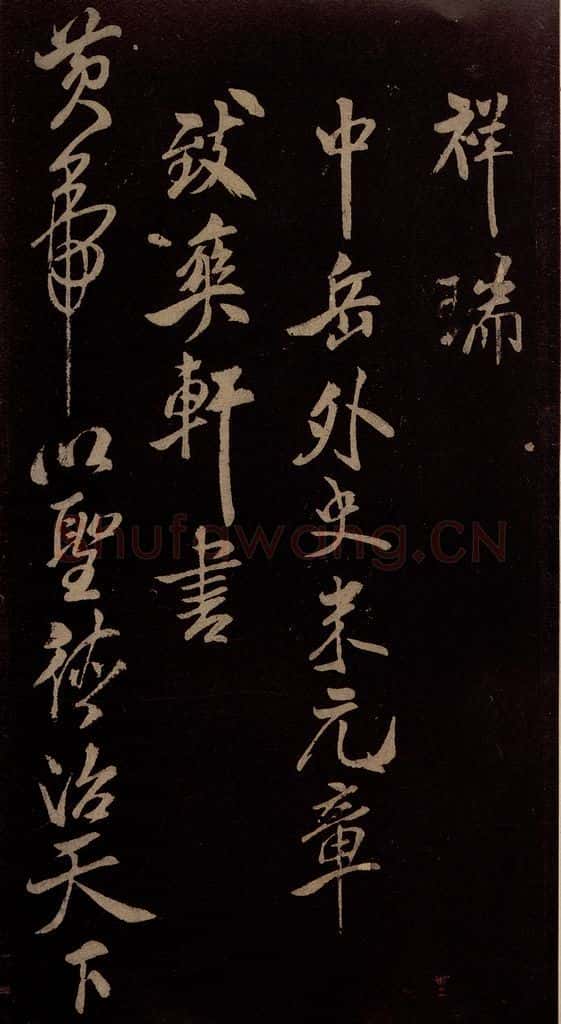 祥瑞
中岳外史米元章
致爽軒書
黄帝以聖德治天下
shufawang.CN